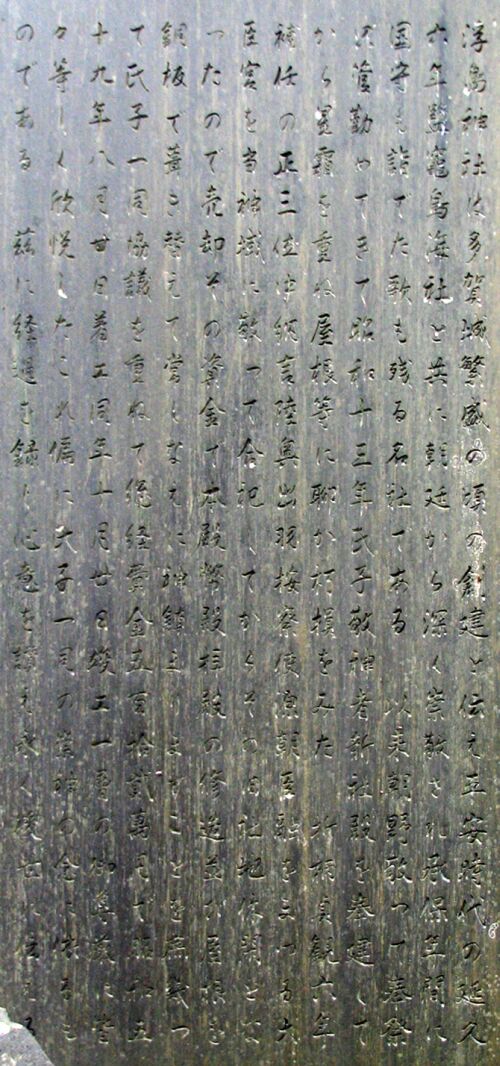 浮島神社は多賀城繁盛の頃の創建と伝え平安時代の延久
六年塩竈鳥海社と共に朝廷から深く崇敬され承保年間に
国守も詣でた歌も残る名社である 以来朝野敬って奉祭
管勤めてきて昭和十三年氏子敬神者新社殿を奉建して
から星霜を重ね屋根等に聊か朽損をみた 折柄貞観六年
補任の正三位中納言陸奥出羽按察使源朝臣融をまつる大
臣宮を当神域に敬って合祀してからその旧社地休閑とな
ったので売却その資金で本殿幣殿拝殿の修造並び屋根を
銅板で葺き替えて常しなえに神鎮まりまさむことを庶幾っ
て氏子一同協議を重ねて総経費金五百拾貳萬円で昭和五
十九年八月廿日着工同年十月廿日竣工一層の御尊厳に皆
々等しく欣悦したこれ偏に氏子一同の崇神の念に依るも
のである 茲に経過を録し心意を讃え永く後世に伝える